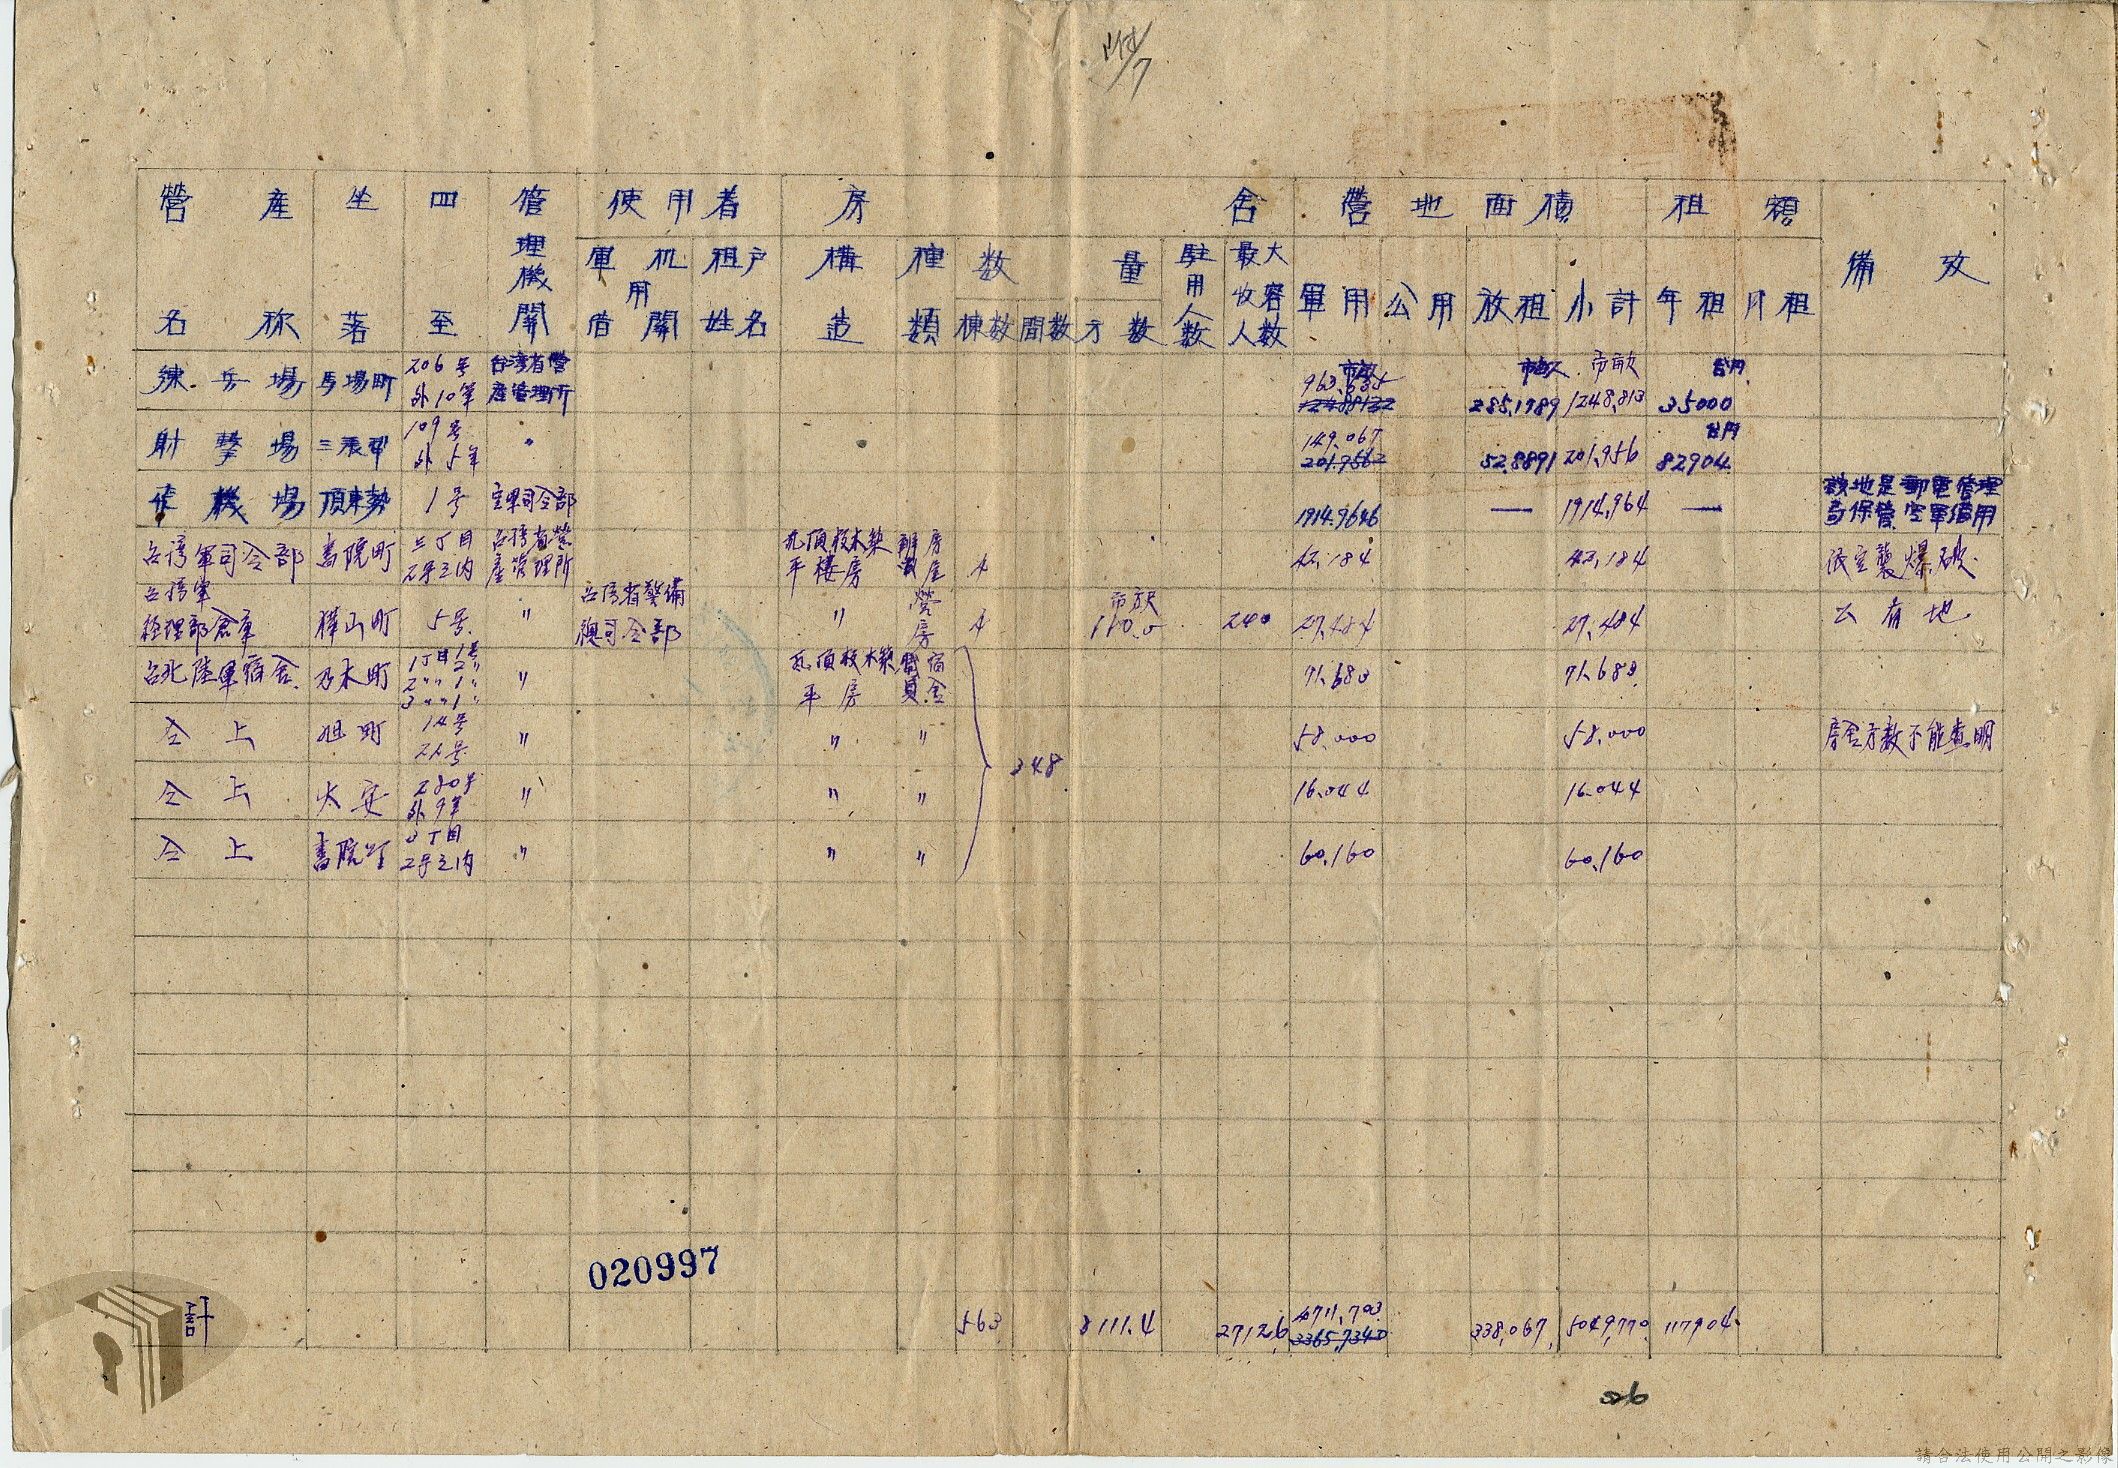 附7
營產 坐 四 管 使用者 房 舍 營地面積 租額
理機 軍機 租戶 構 種 数 量 駐用人数 最大收容人数 軍用 公用 放租 小計 年租 月租 備攷
名称 落 至 關 借用關 姓名 造 類 棟数 間数 方数
練兵場 馬場町 206号 外10筆 台湾省營產管理所 市畝 963,635 市畝 285,1989 市畝 1248,813 台円 35000
射擊場 三張犂 109号 外5筆 〃 149,067 201,9562 52,8891 201,956 台円 82904
飛機場 頂東勢 1号 空軍司令部 1914,9646 — 1914,964 — 該地是郵電管理
保管 空軍借用
台湾軍司令部 書院町 三丁目 2号之内 台湾省營產管理所 瓦頂板木築平楼房 辦公房屋 4 42,184 42,184 被空襲爆破
台湾軍
経理部倉庫 樺山町 5号 〃 台湾省警備
総司令部 〃 營房 4 市方尺 110.0 240 27,484 27,484 公有地
台北陸軍宿舍 乃木町 1丁目1号 〃 2〃 2〃〃1〃 3〃〃1〃 〃 瓦頂板木築平房 職員宿舍 71,683 71,683
仝上 旭町 14号 22号 〃 〃 〃 348 58,000 58,000 房舍方数不能查明
仝上 大安 280号 外9筆 〃 〃 〃 16,044 16,044
仝上 書院町 3丁目 2号之内 〃 〃 〃 60,160 60,160
020997
計 563 8111.4 27126 4711,703 3365,7340 338,067 5049,770 117904
526
請合法使用公開之影像